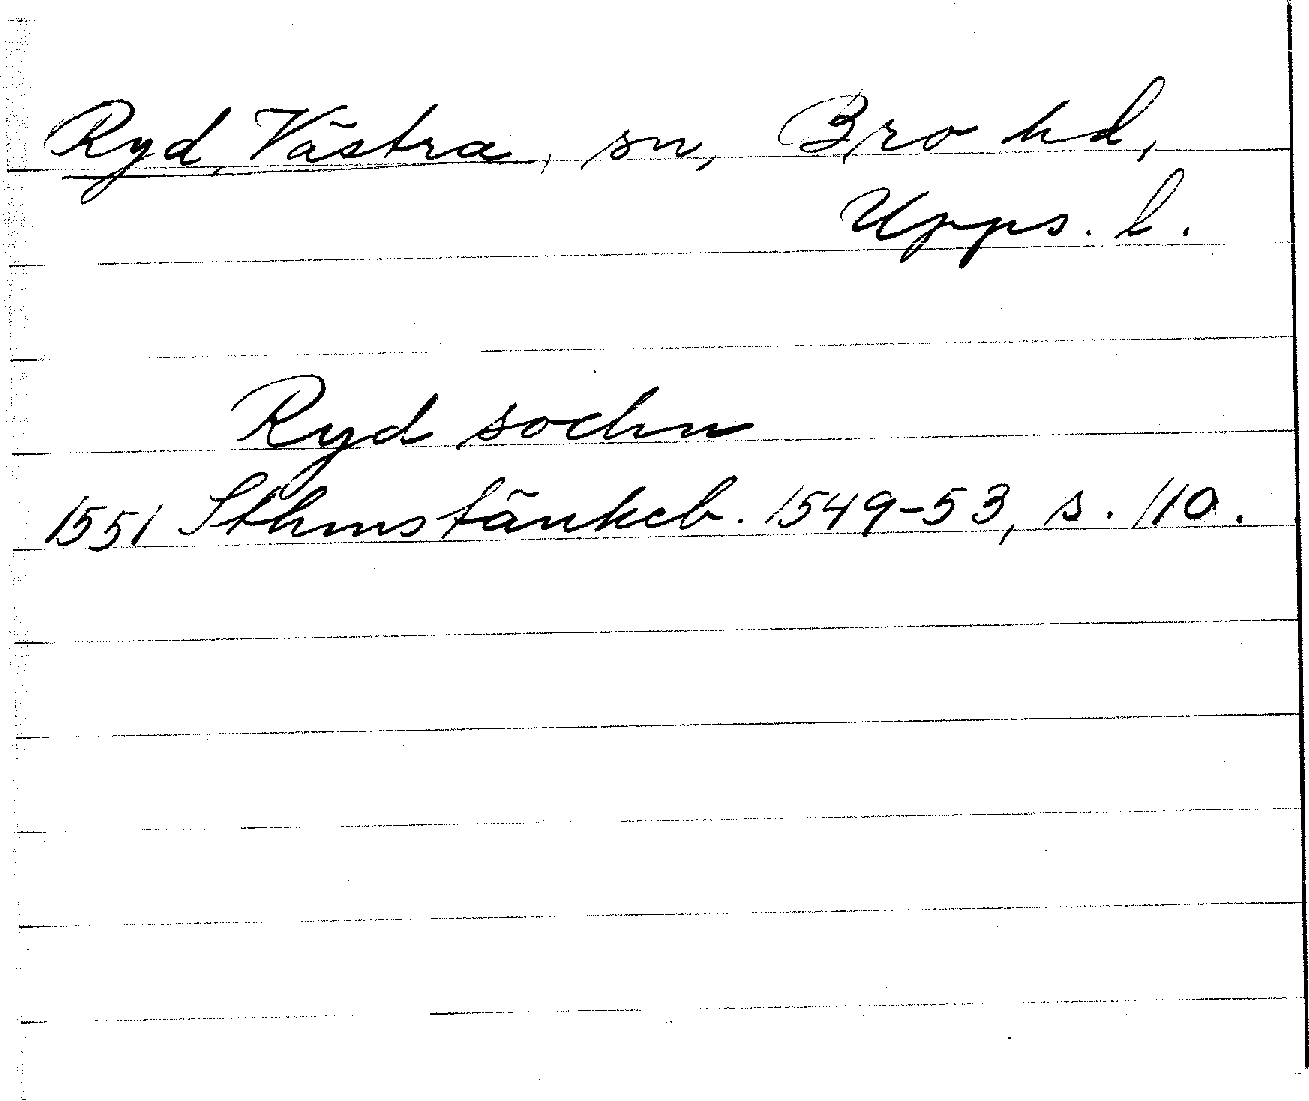 Ryd, Västra, sn, Bro hd,
Upps. l.
Ryd sochn
1551 Sthmstänkeb. 1549-53, s. 110.